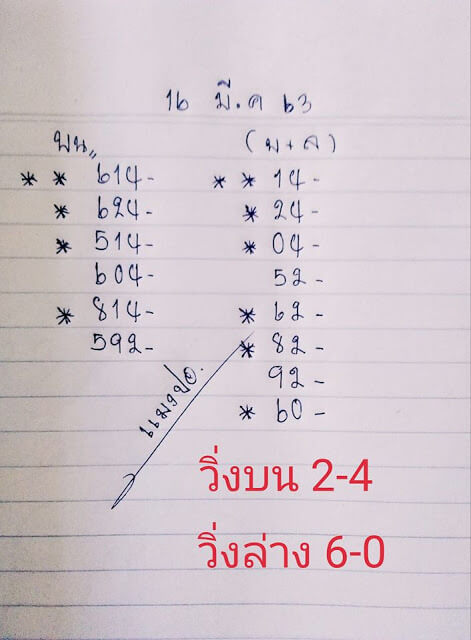 16 มี.ค 63
บน,,
(บ+ล)
* * 614-
* 624-
* 514-
604-
* 814-
592-
* * 14-
* 24-
* 04-
52-
* 62-
* 82-
92-
* 60-
แมงปอ.
วิ่งบน 2-4
วิ่งล่าง 6-0